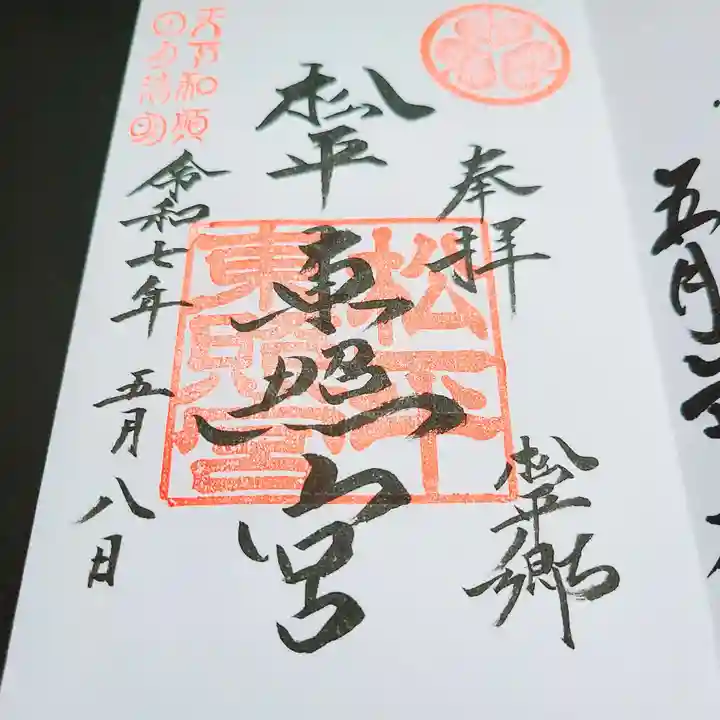 奉拝
松平郷
松平東照宮
松平
東照宮
令和七年五月八日
天下和順
日月清明
五月